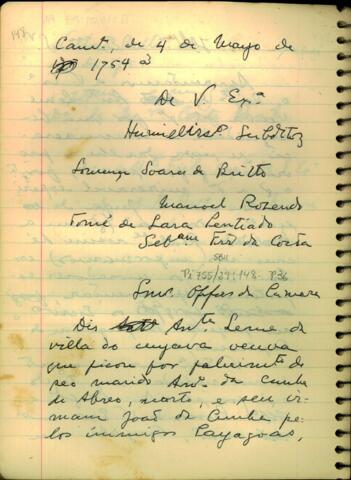 148
Cam.ª, de 4 de Mayo de
1754 a
De V. Ex.ª
Humillis.ˢ Subditos
Lourenço Soares de Britto
Manoel Rozendo
Tomé de Lara Penteado
Seb.ᵃᵐ Frz da Costa
Pi 755/29:148 P36
Snrs. Offes da Camara
Dis Ant.ª Leme da
villa do cuyava veuva
que ficou por falicim.ᵗᵒ de
seo marido Ant.º da Cunha
de Abreo, morto, e seu ir-
mam João da Cunha pe-
los inimigos Payagoas,